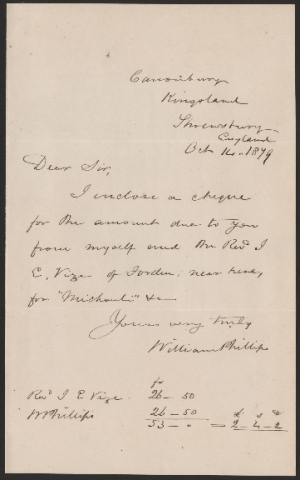 Canonbury
Kingsland
Shrewsbury
England
Oct 14. 1879
Dear Sir,
I enclose a cheque
for the amount due to you
from myself and the Revd J
E. Vize of Forden, near here,
for "Michauli" &c
Yours very truly
William Phillips
fr
Revd J E Vize. 26 — 50
W Phillips 26 — 50 £ s d
53 — 0 = 2 — 4 — 2